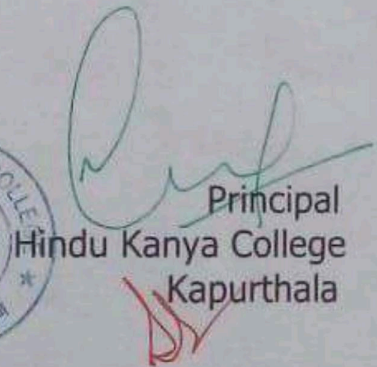 COLLE
Principal
Hindu Kanya College
Kapurthala